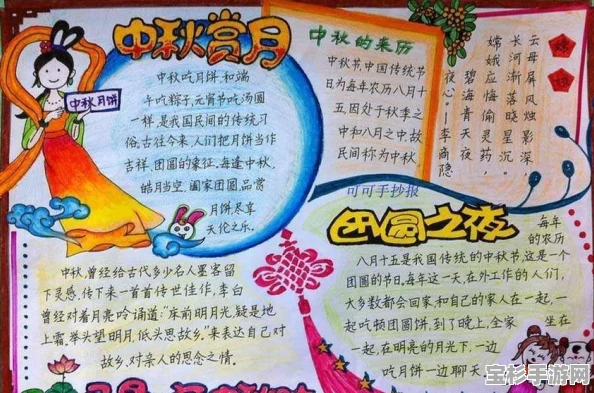 中秋赏月
中秋吃月饼和端
午吃粽子,元宵节吃汤圆
一样,是我国民间的传统习
俗,古往今来,人们把月饼当作
吉祥、团圆的象征,每逢中秋,
皓月当空,阖家团圆,品赏
月饼,尽享
天伦之乐。
中秋月饼
中秋的来历
中秋节,中国传统节
日为每年农历八月十
五,因处于秋季之
中和八月之中故
民间称为中秋
嫦娥
云母屏风烛影深,
长河渐落晓星沉。
嫦娥应悔偷灵药,
碧海青天夜
夜心。李商隐
可可手抄报
中秋,曾经给古代多少名人墨客留
下灵感,传下来一首首传世佳作,李白
曾经对着月亮吟诵道:“床前明月光,疑是地
上霜,举头望明月,低头思故乡。”来表达自己对
故乡、对亲人的思念之情。
团圆之夜
每年
的农历
八月十五是我国传统的中秋节,这是一个
团圆的节日。每年这一天,在外工作的人们,
大多数都会回家,和自己的家人在一起,一
起吃顿团圆饼,到了晚上,全家 坐在
一起,在明亮的月光下,一边
吃月饼一边聊天
宝杉手游网